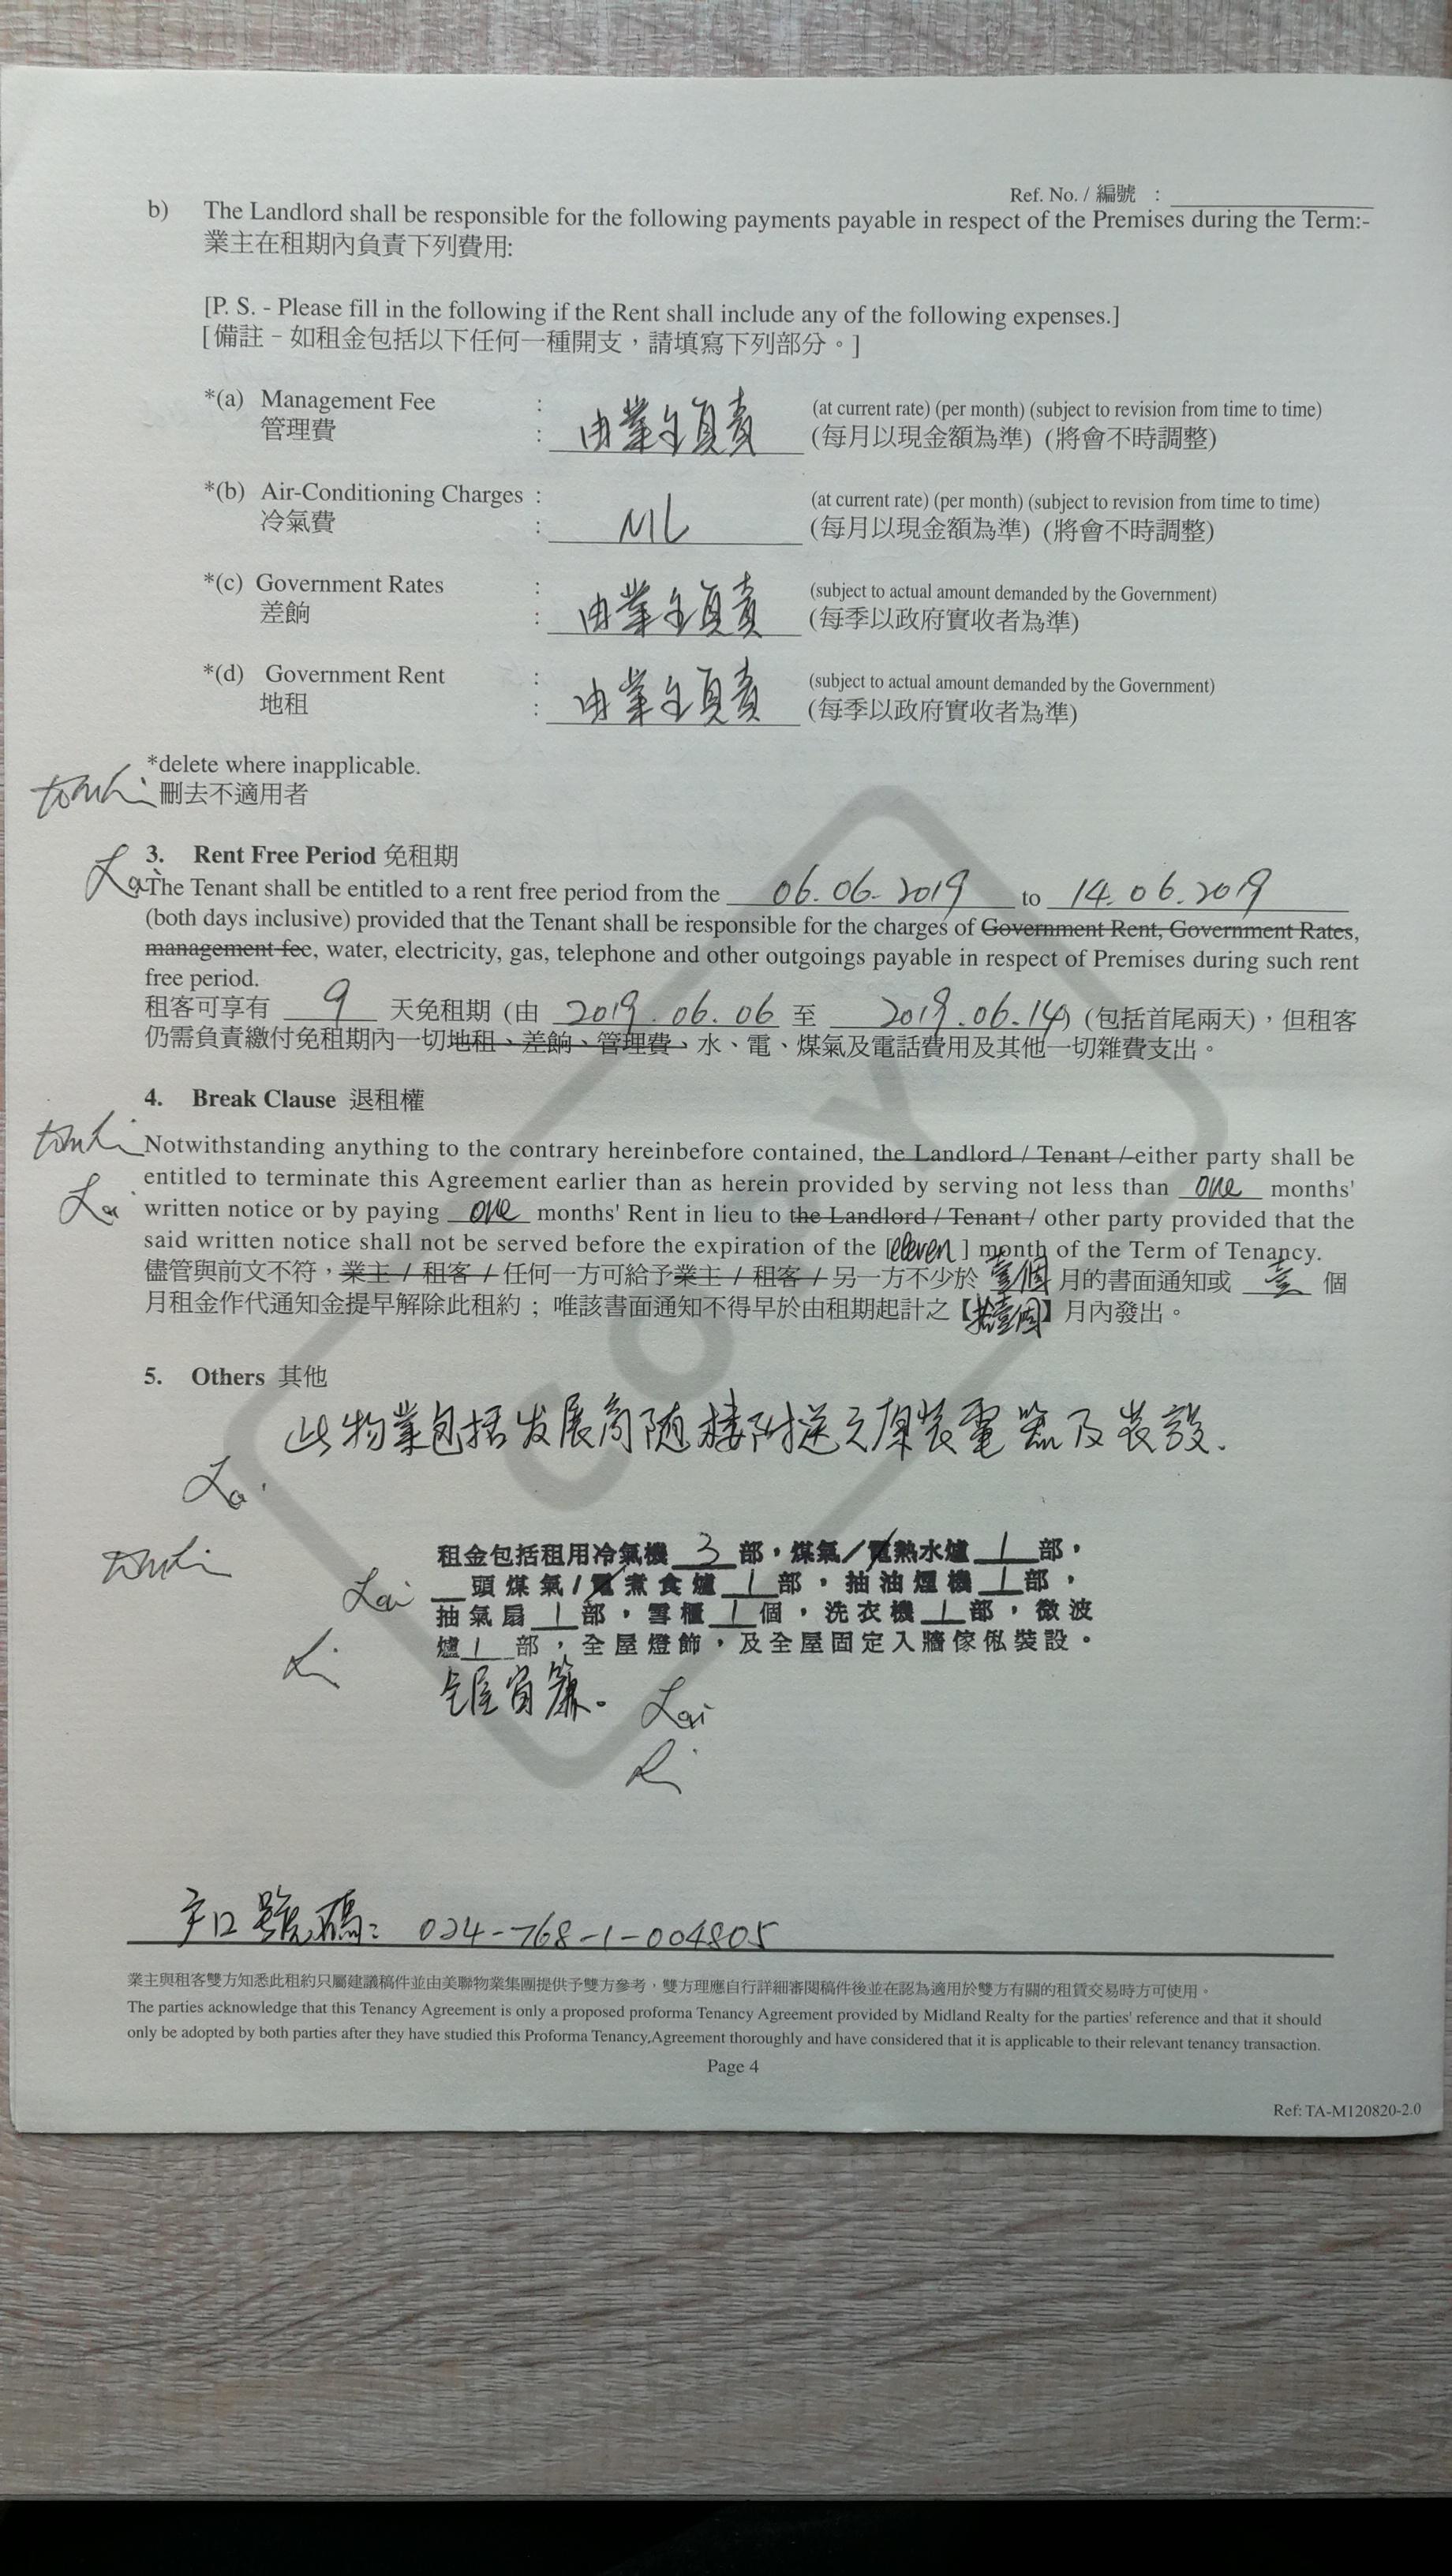 Ref. No. / 編號 :
b) The Landlord shall be responsible for the following payments payable in respect of the Premises during the Term:-
業主在租期內負責下列費用:
[P. S. - Please fill in the following if the Rent shall include any of the following expenses.]
[備註 - 如租金包括以下任何一種開支，請填寫下列部分。]
*(a) Management Fee : (at current rate) (per month) (subject to revision from time to time)
管理費 : 由業主負責 (每月以現金額為準) (將會不時調整)
*(b) Air-Conditioning Charges : (at current rate) (per month) (subject to revision from time to time)
冷氣費 : NIL (每月以現金額為準) (將會不時調整)
*(c) Government Rates : (subject to actual amount demanded by the Government)
差餉 : 由業主負責 (每季以政府實收者為準)
*(d) Government Rent : (subject to actual amount demanded by the Government)
地租 : 由業主負責 (每季以政府實收者為準)
*delete where inapplicable.
刪去不適用者
3. Rent Free Period 免租期
Lai
The Tenant shall be entitled to a rent free period from the 06.06.2019 to 14.06.2019
(both days inclusive) provided that the Tenant shall be responsible for the charges of Government Rent, Government Rates,
management fee, water, electricity, gas, telephone and other outgoings payable in respect of Premises during such rent
free period.
租客可享有 9 天免租期 (由 2019.06.06 至 2019.06.14) (包括首尾兩天)，但租客
仍需負責繳付免租期內一切地租、差餉、管理費、水、電、煤氣及電話費用及其他一切雜費支出。
4. Break Clause 退租權
Notwithstanding anything to the contrary hereinbefore contained, the Landlord / Tenant / either party shall be
entitled to terminate this Agreement earlier than as herein provided by serving not less than one months'
Lai
written notice or by paying one months' Rent in lieu to the Landlord / Tenant / other party provided that the
said written notice shall not be served before the expiration of the [eleven] month of the Term of Tenancy.
儘管與前文不符，業主 / 租客 / 任何一方可給予業主 / 租客 / 另一方不少於 壹個 月的書面通知或 壹 個
月租金作代通知金提早解除此租約；唯該書面通知不得早於由租期起計之【拾壹個】月內發出。
5. Others 其他
此物業包括发展商随樓附送之原装電器及装設.
Lai
租金包括租用冷氣機 3 部，煤氣/電熱水爐 1 部，
Lai
頭煤氣/電煮食爐 1 部，抽油煙機 1 部，
抽氣扇 1 部，雪櫃 1 個，洗衣機 1 部，微波
爐 1 部，全屋燈飾，及全屋固定入牆傢俬裝設。
全屋窗簾。 Lai
COPY
戶口號碼: 024-768-1-004805
業主與租客雙方知悉此租約只屬建議稿件並由美聯物業集團提供予雙方參考，雙方理應自行詳細審閱稿件後並在認為適用於雙方有關的租賃交易時方可使用。
The parties acknowledge that this Tenancy Agreement is only a proposed proforma Tenancy Agreement provided by Midland Realty for the parties' reference and that it should
only be adopted by both parties after they have studied this Proforma Tenancy Agreement thoroughly and have considered that it is applicable to their relevant tenancy transaction.
Page 4
Ref: TA-M120820-2.0